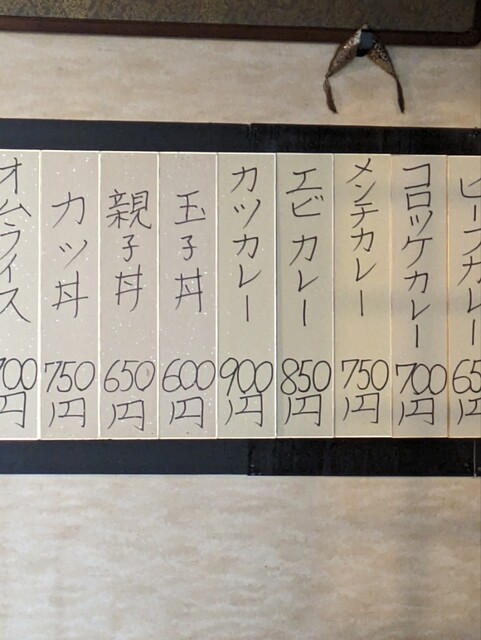 ビーフカレー 65
コロッケカレー 700円
メンチカレー 750円
エビカレー 850円
カツカレー 900円
玉子丼 600円
親子丼 650円
カツ丼 750円
オムライス 700円